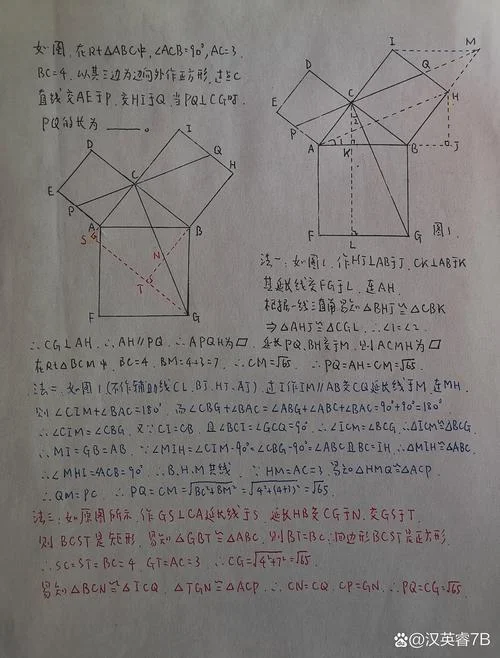 如图,在Rt△ABC中,∠ACB=90°,AC=3,
BC=4,以其三边为边向外作正方形,过点C
直线交AE于P,交HI于Q,当PQ⊥CG时,
PQ的长为 ____。
I
M
D
C
Q
H
E
P
2
1
A
K
B
J
F
L
G
图1
I
D
Q
C
H
E
P
A
S
N
B
T
F
G
法一:如图1,作HJ⊥AB于J,CK⊥AB于K
其延长线交FG于L,连AH.
根据一线三直角易知△BHJ≌△CBK
⇒△AHJ≌△CGL.∴∠1=∠2.
∴CG⊥AH.∴AH∥PQ.∴APQH为▱.延长PQ、BH交于M,则ACMH为▱
在Rt△BCM中,BC=4,BM=4+3=7,∴CM=√65.∴PQ=AH=CM=√65.
法二,如图1(不作辅助线CL、BJ、HJ、AJ),过I作IM∥AB交CQ延长线于M,连MH.
则∠CIM+∠BAC=180°,而∠CBG+∠BAC=∠ABG+∠ABC+∠BAC=90°+90°=180°
∴∠CIM=∠CBG,又∵CI=CB,且∠BCI=∠GCQ=90°∴∠ICM=∠BCG,∴△ICM≌△BCG.
∴MI=GB=AB.∵∠MIH=∠CIM-90°=∠CBG-90°=∠ABC且BC=IH,∴△MIH≌△ABC,
∴∠MHI=∠ACB=90°∴B、H、M共线.∵HM=AC=3,易知△HMQ≌△ACP
∴QM=PC.∴PQ=CM=√BC²+BM²=√4²+(4+3)²=√65.
法三:如原图所示,作GS⊥CA延长线于S,延长HB交CG于N,交GS于T.
则BCST是矩形,易知△GBT≌△ABC,则BT=BC,∴四边形BCST是正方形,
∴SC=ST=BC=4,GT=AC=3∴CG=√4²+7²=√65.
易知△BCN≌△ICQ,△TGN≌△ACP.∴CN=CQ,CP=GN,∴PQ=CG=√65.
Bai百度@汉英睿7B